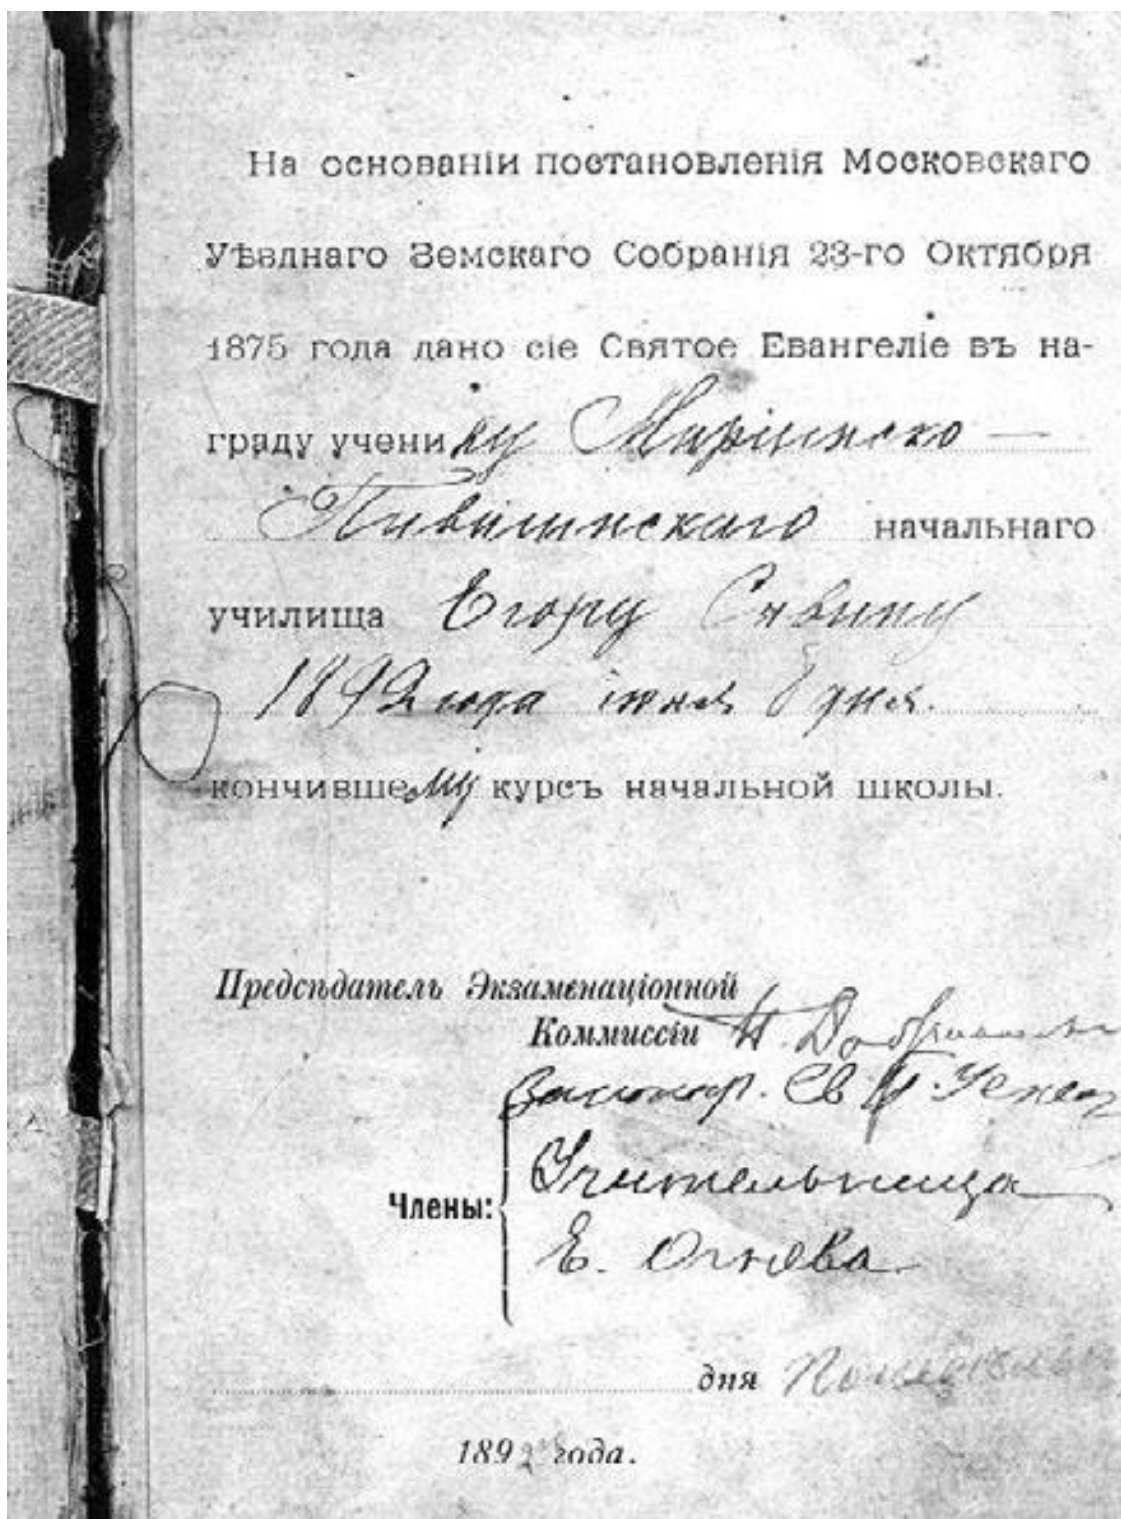 На основаніи постановленія Московскаго
Уѣзднаго Земскаго Собранія 23-го Октября
1875 года дано сіе Святое Евангеліе въ на-
граду ученику Маріинско-
начальнаго
училища Егору Савину
1892 года іюня 8 дня.
кончившему курсъ начальной школы.
Предсѣдатель Экзаменаціонной
Коммиссіи П.
Законоуч. Св. П.
Члены: Учительница
Е. Огнева
дня
1892 года.